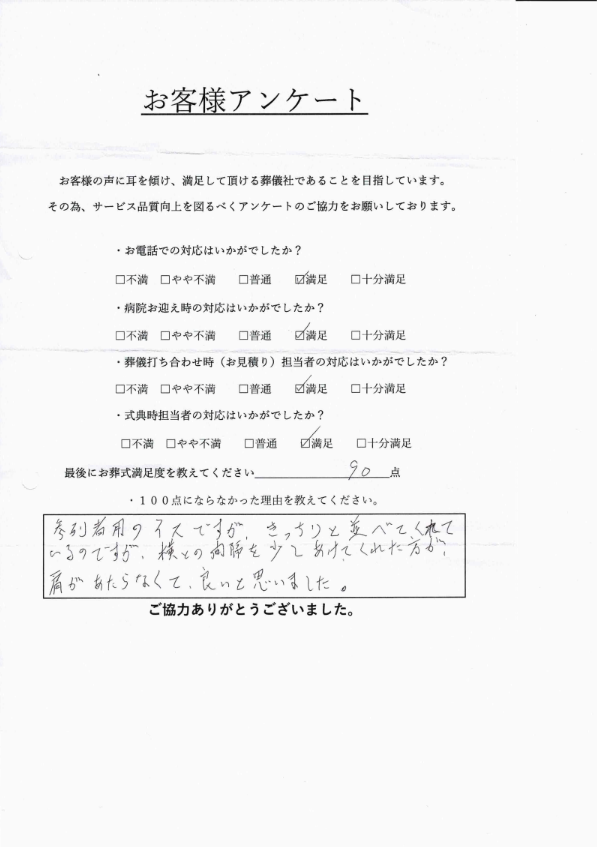 お客様アンケート
お客様の声に耳を傾け、満足して頂ける葬儀社であることを目指しています。
その為、サービス品質向上を図るべくアンケートのご協力をお願いしております。
・お電話での対応はいかがでしたか？
□不満 □やや不満 □普通 ☑満足 □十分満足
・病院お迎え時の対応はいかがでしたか？
□不満 □やや不満 □普通 ☑満足 □十分満足
・葬儀打ち合わせ時（お見積り）担当者の対応はいかがでしたか？
□不満 □やや不満 □普通 ☑満足 □十分満足
・式典時担当者の対応はいかがでしたか？
□不満 □やや不満 □普通 ☑満足 □十分満足
最後にお葬式満足度を教えてください 90 点
・１００点にならなかった理由を教えてください。
参列者用のイスですが、きっちりと並べてくれて
いるのですが、横との間隔を少しあけてくれた方が、
肩があたらなくて、良いと思いました。
ご協力ありがとうございました。